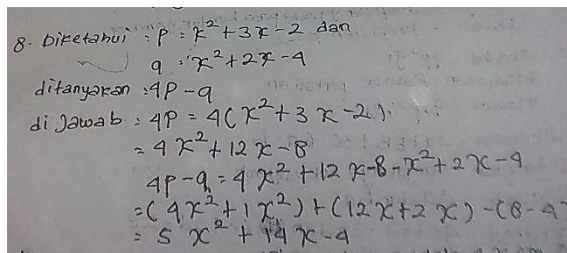 8. Diketahui : p = x² + 3x - 2 dan
q = x² + 2x - 4
ditanyakan : 4p - q
di Jawab : 4p = 4(x² + 3x - 2)
= 4x² + 12x - 8
4p - q = 4x² + 12x - 8 - x² + 2x - 4
= (4x² + 1x²) + (12x + 2x) - (8 - 4
= 5x² + 14x - 4